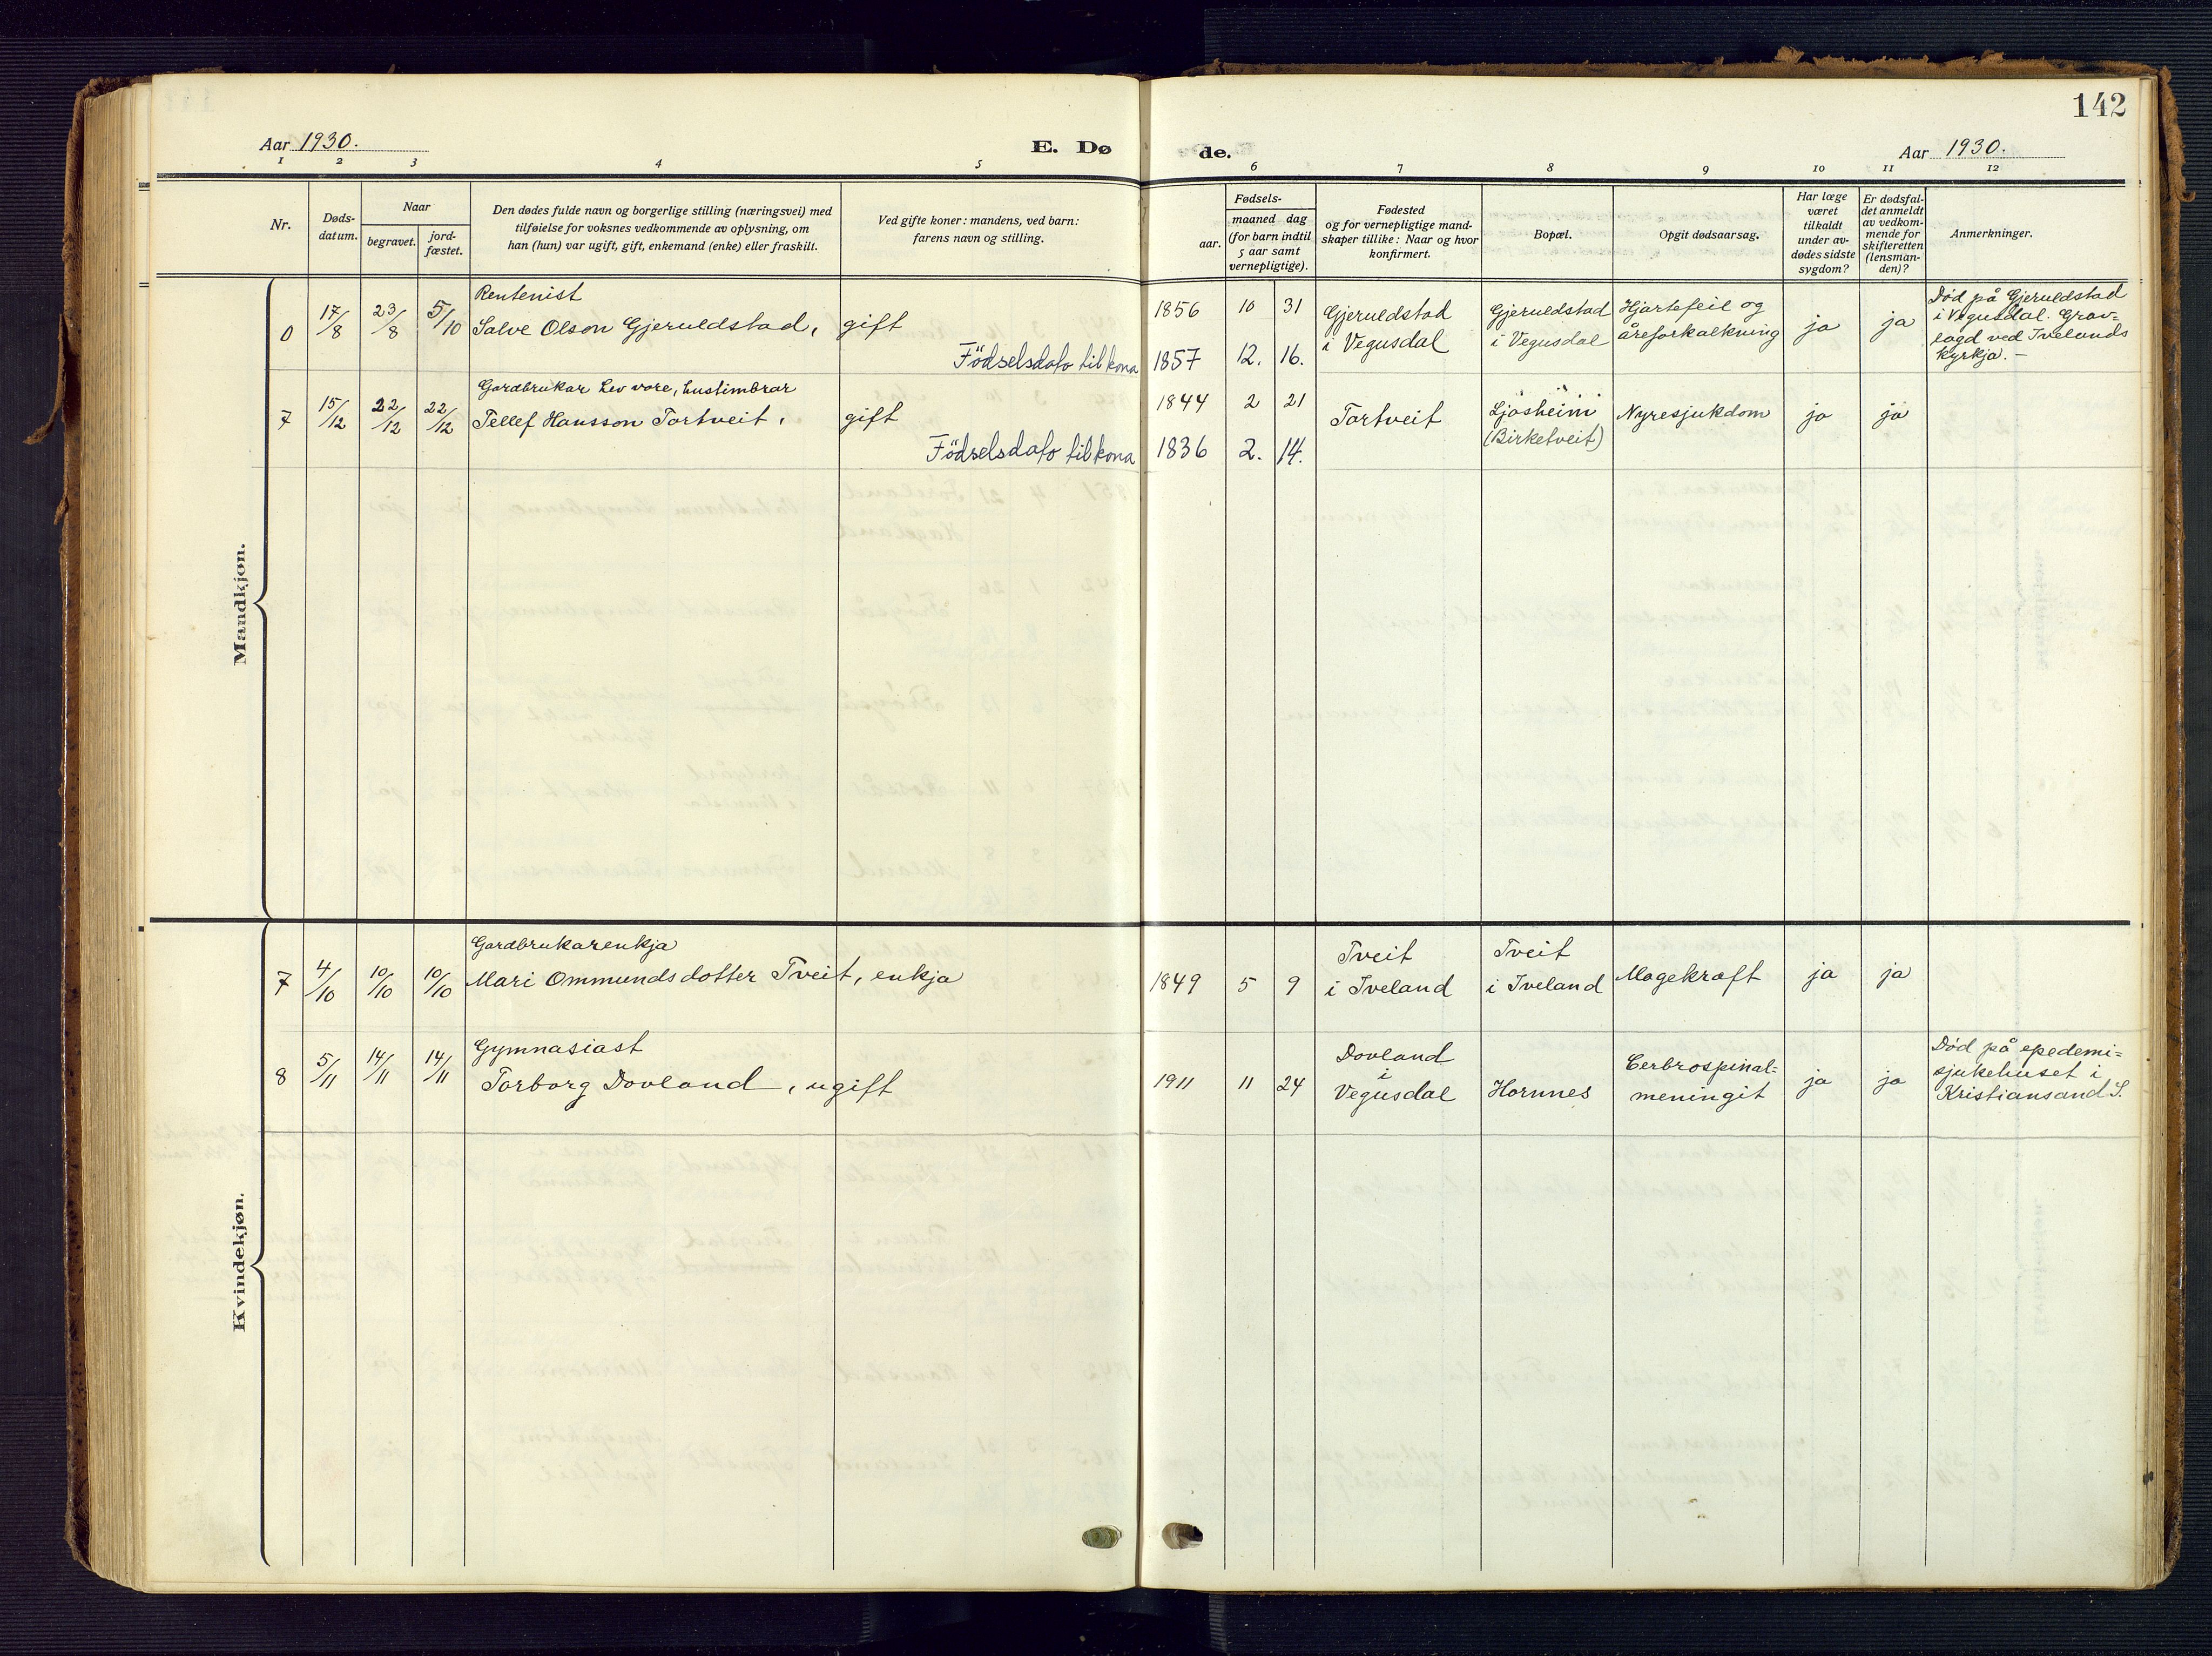 142
Aar 1930.
E. Dø
de.
Aar 1930.
1 2 3 4 5 6 7 8 9 10 11 12
Nr.
Døds-
datum.
Naar
begravet.
jord-
fæstet.
Den dødes fulde navn og borgerlige stilling (næringsvei) med
tilføielse for voksnes vedkommende av oplysning, om
han (hun) var ugift, gift, enkemand (enke) eller fraskilt.
Ved gifte koner: mandens, ved barn:
farens navn og stilling.
Fødsels-
aar.
maaned dag
(for barn indtil
5 aar samt
vernepligtige).
Fødested
og for vernepliktige mand-
skaper tillike: Naar og hvor
konfirmert.
Bopæl.
Opgit dødsaarsag.
Har læge
været
tilkaldt
under av-
dødes sidste
sygdom?
Er dødsfal-
det anmeldt
av vedkom-
mende for
skifteretten
(lensman-
den)?
Anmerkninger.
Mandkjøn.
Rentenist
0 17/8 23/8 5/10 Salve Olson Gjeruldstad, gift
1856 10 31
Gjeruldstad
i Vegusdal
Gjeruldstad
i Vegusdal
Hjartefeil og
åreforkalkning
ja ja
Död på Gjeruldstad
i Vegusdal. Grav=
lagd ved Ivelands
kyrkja. —
Födselsdato til kona 1857 12. 16.
Gardbrukar, hustimbrar
7 15/12 22/12 22/12 Tellef Hansson Tortveit, gift
1844 2 21
Tortveit
Ljosheim
(Birketveit)
Nyresjukdom
ja ja
Födselsdato til kona 1836 2. 14.
Kvindekjøn.
Gardbrukarenkja
7 4/10 10/10 10/10 Mari Ommundsdotter Tveit, enkja
1849 5 9
Tveit
i Iveland
Tveit
i Iveland
Magekræft
ja ja
Gymnasiast
8 5/11 14/11 14/11 Torborg Dovland, ugift
1911 11 24
Dovland
i
Vegusdal
Hornnes
Cerbrospinal=
meningit
ja ja
Död på epedemi=
sjukehuset i
Kristiansand S.